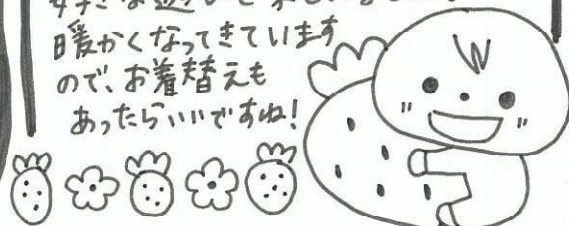 暖かくなってきています
ので、お着替えも
あったらいいですね!